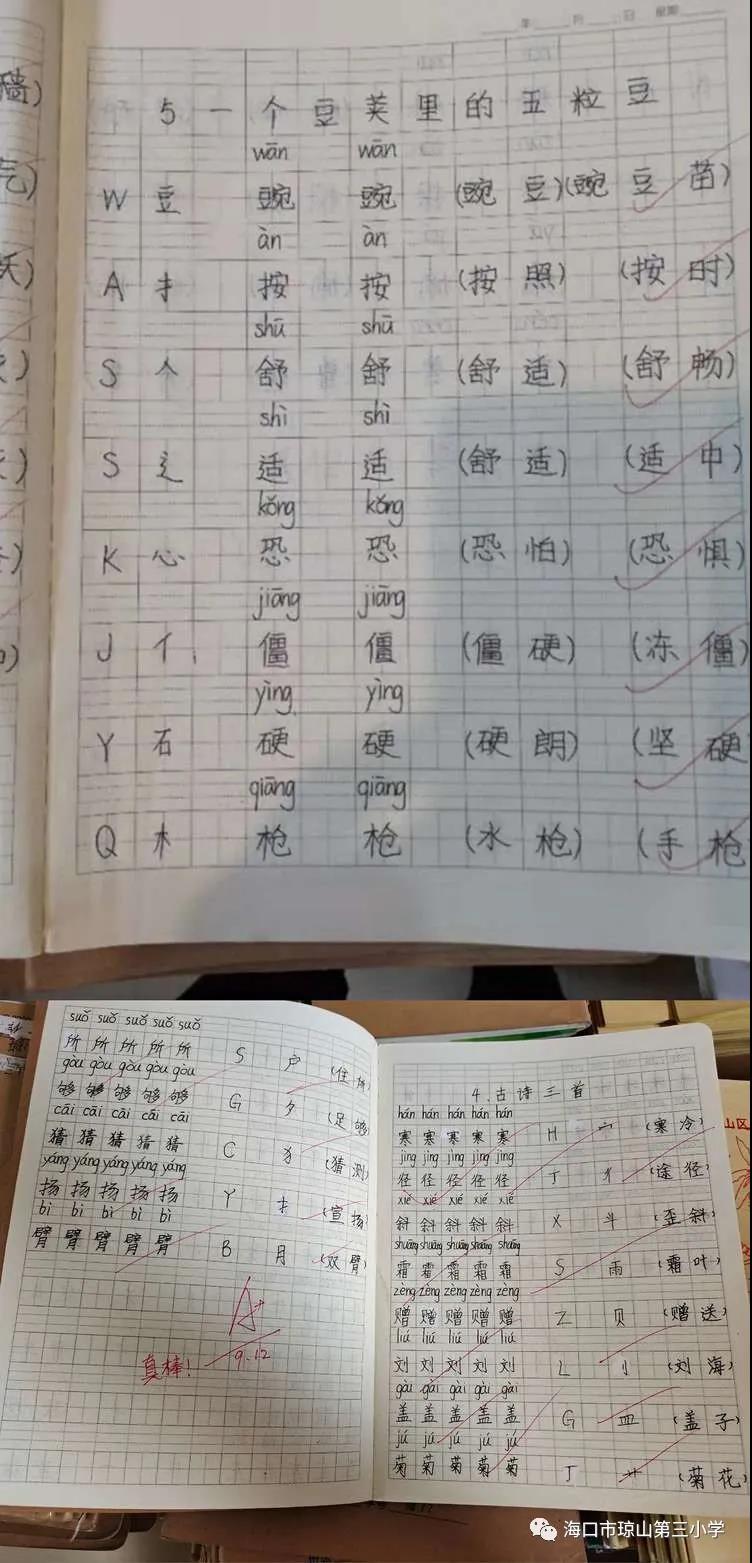 年 月 日 星期
5 一个豆荚里的五粒豆
wān wān
W 豆 豌 豌 (豌豆)(豌豆苗)
àn àn
A 扌 按 按 (按照) (按时)
shū shū
S 人 舒 舒 (舒适) (舒畅)
shì shì
S 辶 适 适 (舒适) (适中)
kǒng kǒng
K 心 恐 恐 (恐怕) (恐惧)
jiāng jiāng
J 亻 僵 僵 (僵硬) (冻僵)
yìng yìng
Y 石 硬 硬 (硬朗) (坚硬
qiāng qiāng
Q 木 枪 枪 (水枪) (手枪
suǒ suǒ suǒ suǒ suǒ
所 所 所 所 所 S 户 (住所)
gòu gòu gòu gòu gòu
够 够 够 够 够 G 夕 (足够
cāi cāi cāi cāi cāi
猜 猜 猜 猜 猜 C 犭 (猜测)
yáng yáng yáng yáng yáng
扬 扬 扬 扬 扬 Y 扌 (宣扬)
bì bì bì bì bì
臂 臂 臂 臂 臂 B 月 (双臂)
A+
9.12
真棒!
4.古诗三首
hán hán hán hán hán
寒 寒 寒 寒 寒 H 宀 (寒冷)
jìng jìng jìng jìng jìng
径 径 径 径 径 J 彳 (途径)
xié xié xié xié xié
斜 斜 斜 斜 斜 X 斗 (歪斜)
shuāng shuāng shuāng shuāng shuāng
霜 霜 霜 霜 霜 S 雨 (霜叶)
zèng zèng zèng zèng zèng
赠 赠 赠 赠 赠 Z 贝 (赠送)
liú liú liú liú liú
刘 刘 刘 刘 刘 L 刂 (刘海)
gài gài gài gài gài
盖 盖 盖 盖 盖 G 皿 (盖子)
jú jú jú jú jú
菊 菊 菊 菊 菊 J 艹 (菊花)
海口市琼山第三小学